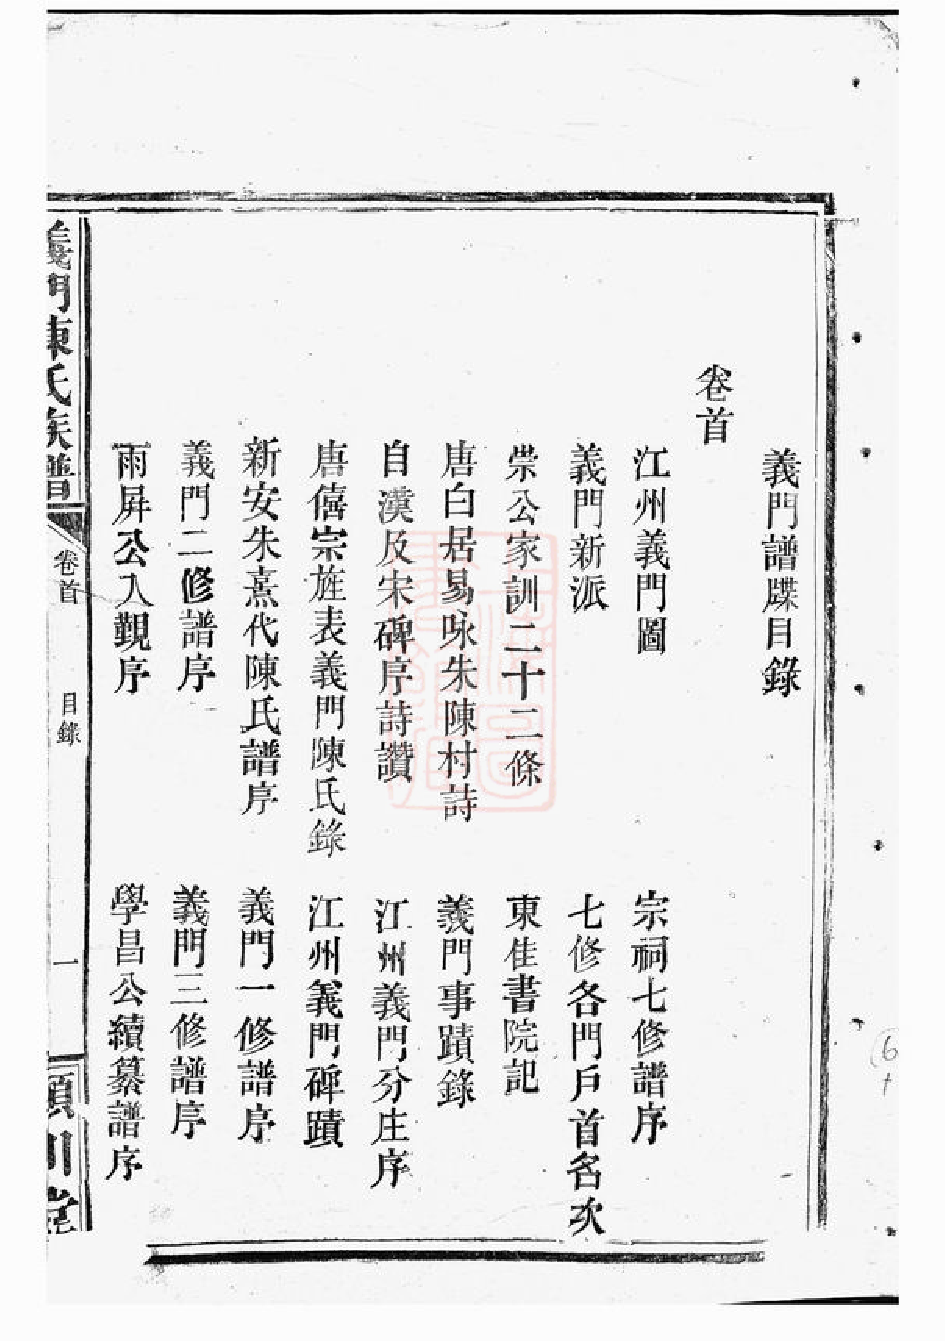 義門譜牒目錄
卷首
江州義門圖 宗祠七修譜序
義門新派 七修各門戶首名次
崇公家訓二十二條 東佳書院記
唐白居易咏朱陳村詩 義門事蹟錄
自漢及宋碑序詩讚 江州義門分庄序
唐僖宗旌表義門陳氏錄 江州義門碑蹟
新安朱熹代陳氏譜序 義門一修譜序
義門二修譜序 義門三修譜序
雨屏公入覲序 學昌公續纂譜序
義門陳氏族譜 卷首 目錄 一 潁川堂